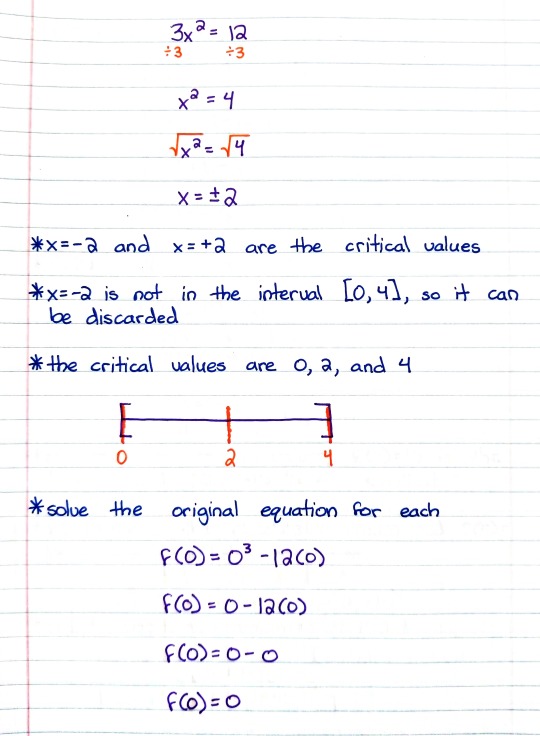 3x² = 12
÷3 ÷3
x² = 4
√x² = √4
x = ±2
*x=-2 and x=+2 are the critical values
*x=-2 is not in the interval [0,4], so it can
be discarded
*the critical values are 0, 2, and 4
0 2 4
*solve the original equation for each
f(0) = 0³ -12(0)
f(0) = 0-12(0)
f(0) = 0-0
f(0) = 0